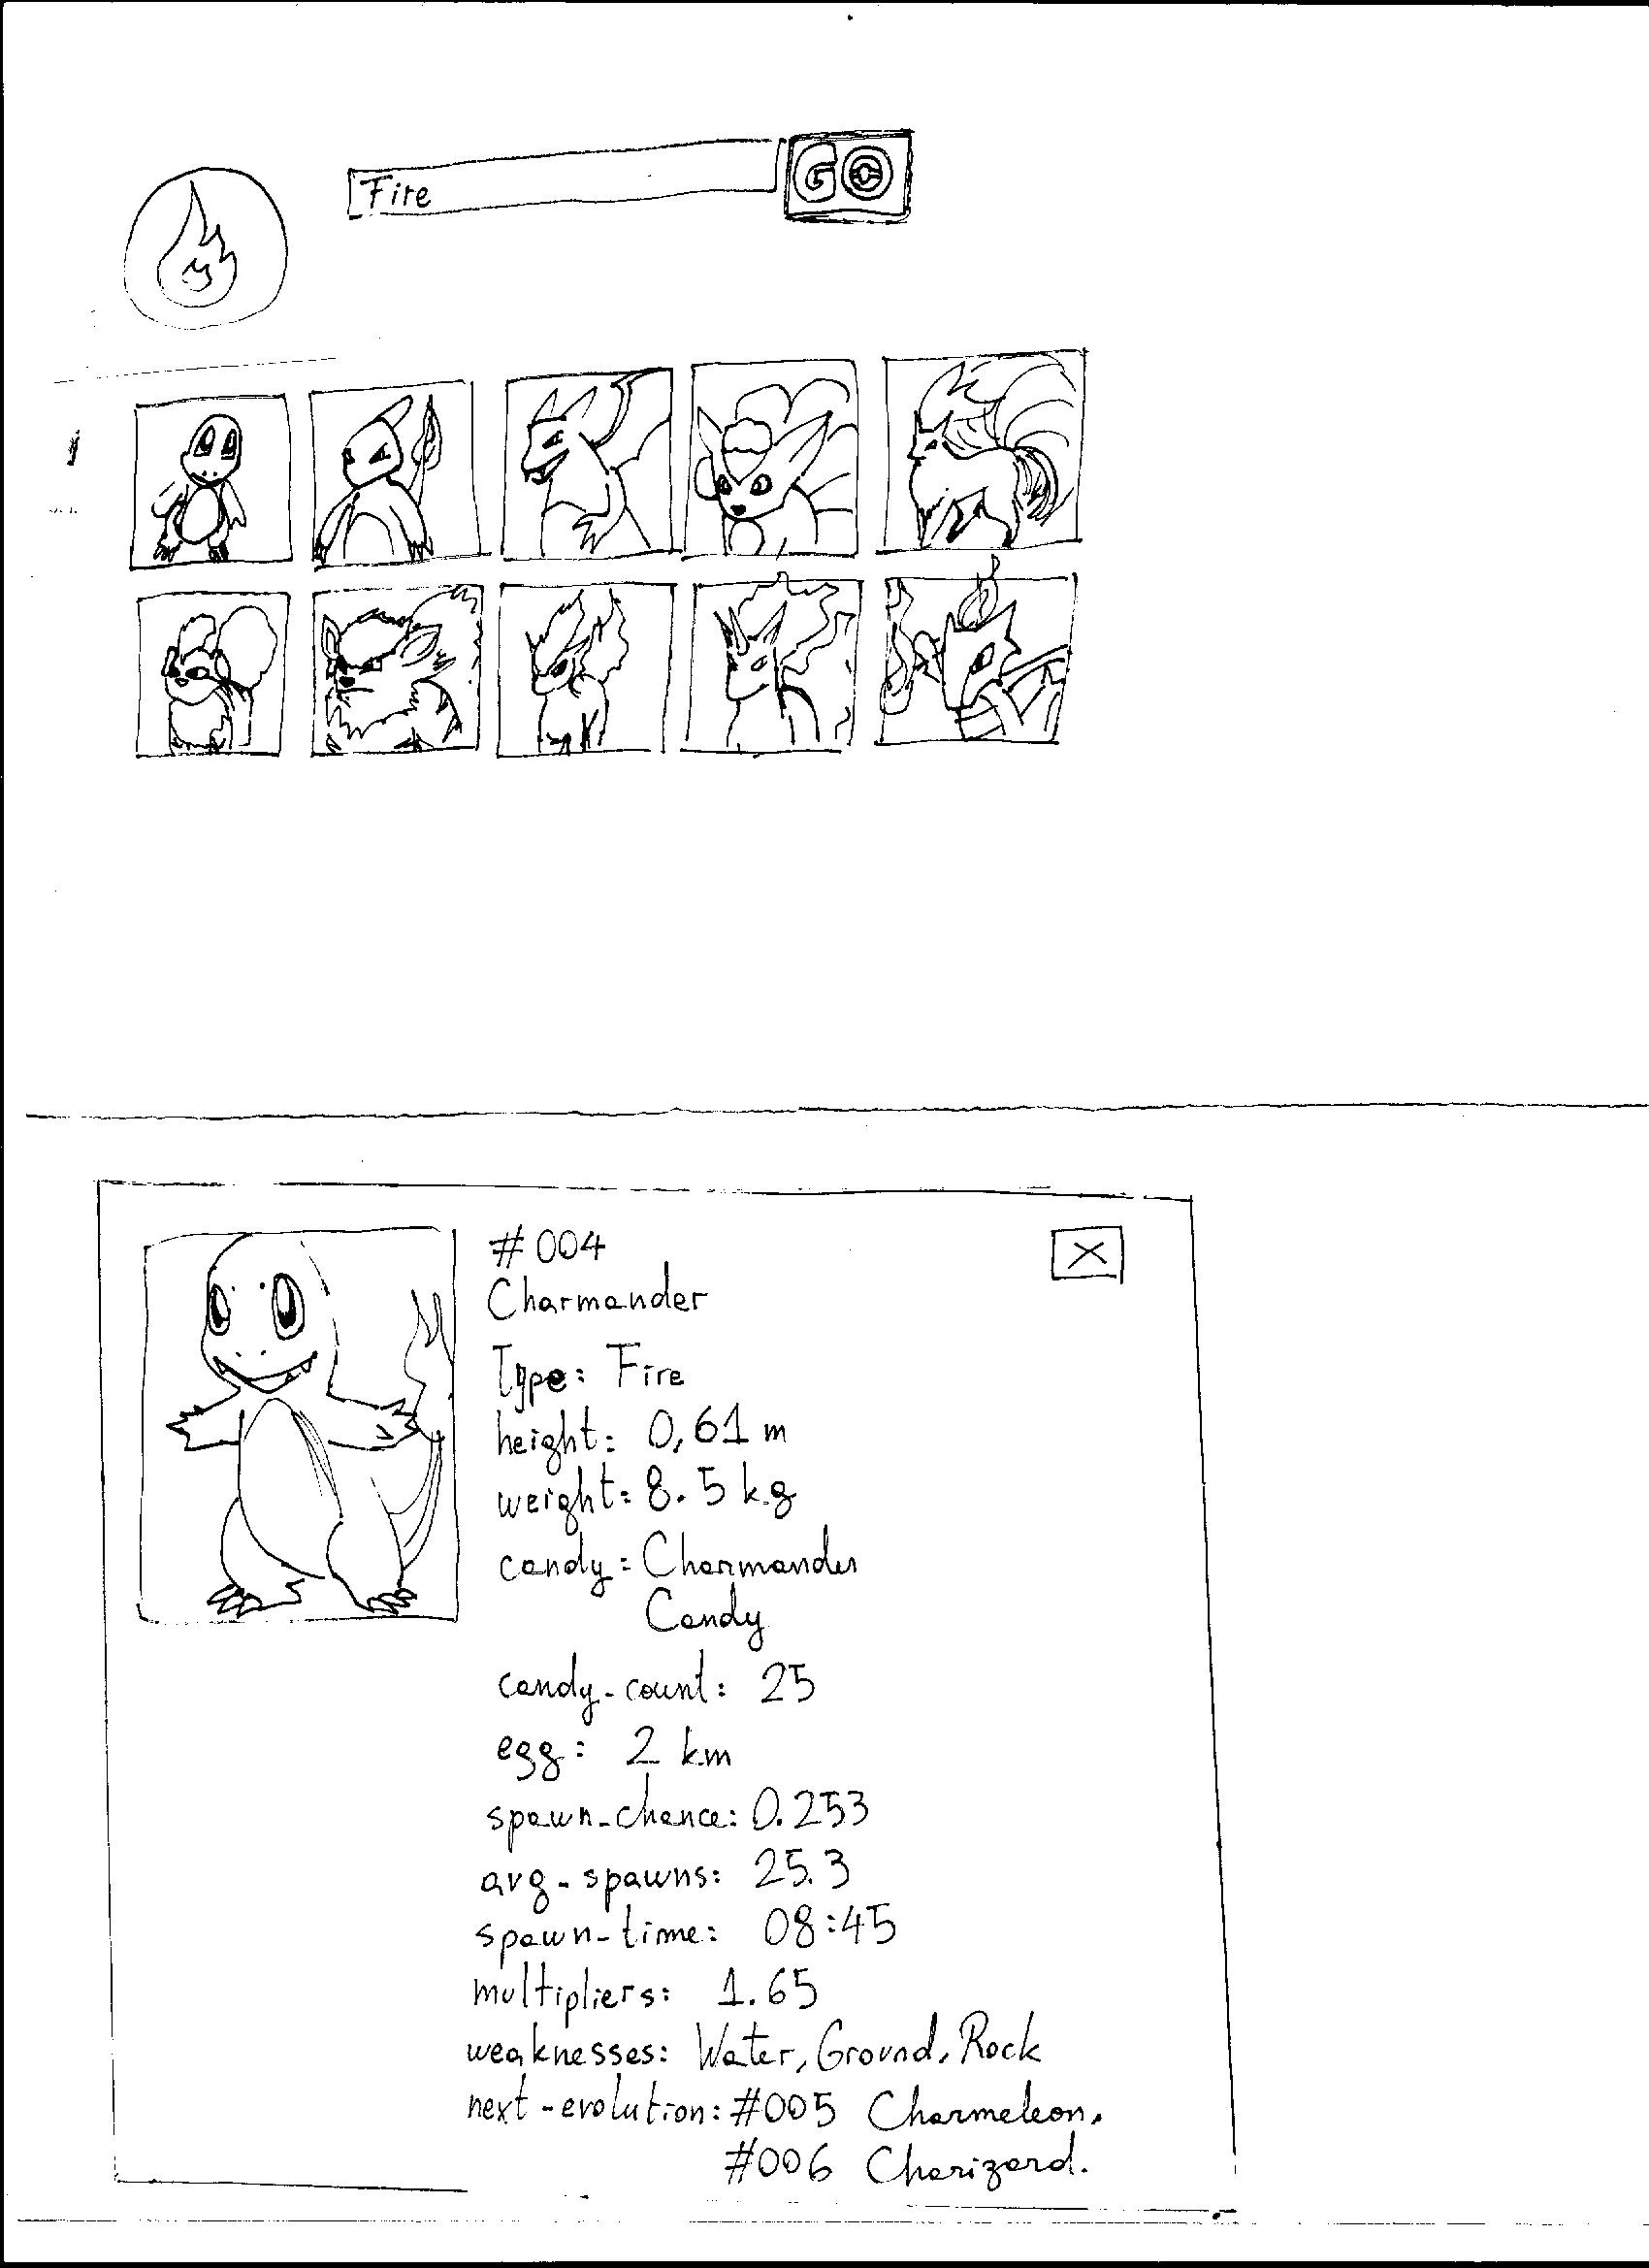 Fire
GO
#004
Charmander
Type: Fire
height: 0,61 m
weight: 8.5 kg
candy: Charmander
Candy
candy-count: 25
egg: 2 km
spawn-chance: 0.253
avg-spawns: 25.3
spawn-time: 08:45
multipliers: 1.65
weaknesses: Water, Ground, Rock
next-evolution: #005 Charmeleon,
#006 Charizard.